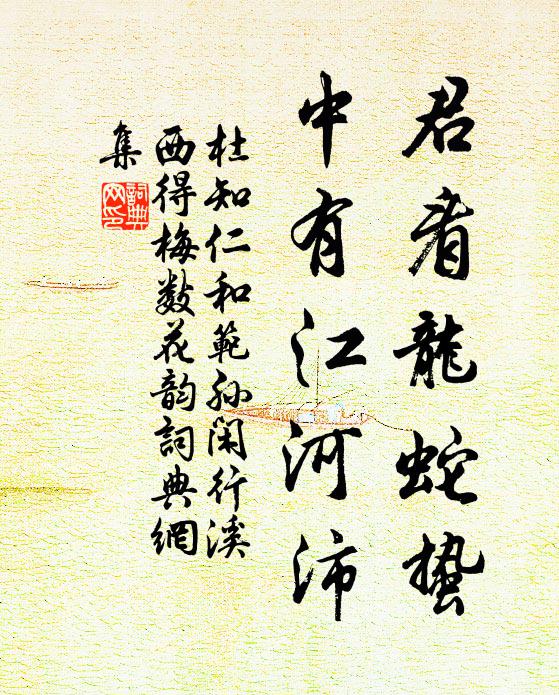 君看龍蛇蟄
中有江河沛
杜知仁和範孫閑行溪
西得梅數花韵詞典網
集
詞典
网印